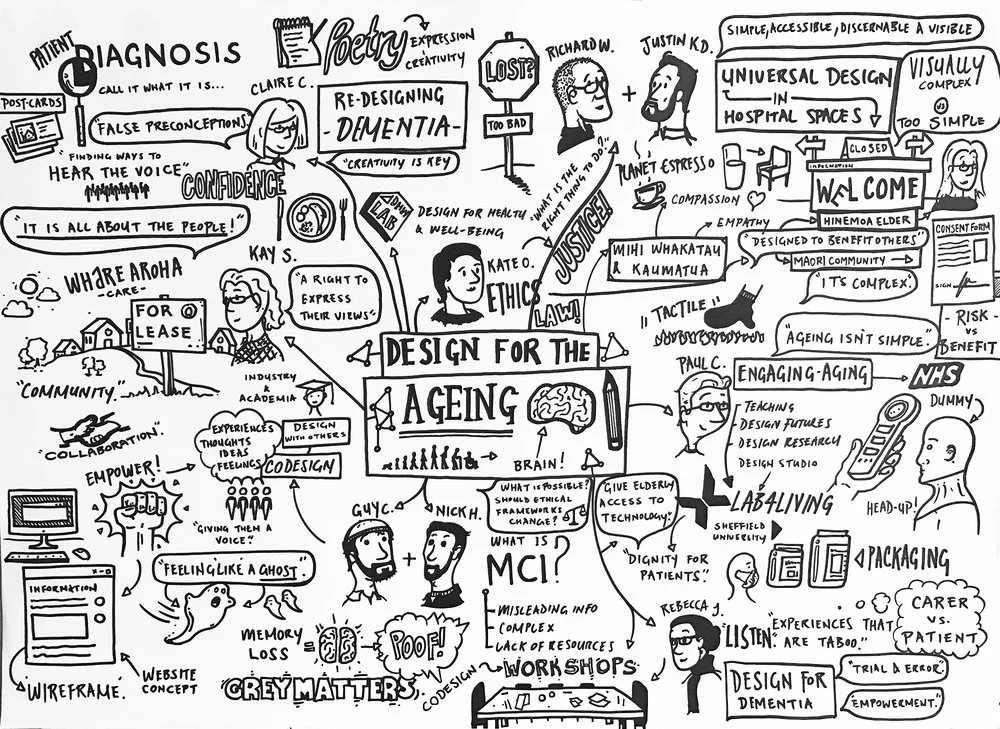 PATIENT
DIAGNOSIS
CALL IT WHAT IT IS...
POST-CARDS
"FALSE PRECONCEPTIONS"
"FINDING WAYS TO
HEAR THE VOICE"
CLAIRE C.
CONFIDENCE
Poetry
EXPRESSION
CREATIVITY
RE-DESIGNING
-DEMENTIA-
"CREATIVITY IS KEY
LOST?
TOO BAD
RICHARD W.
+
JUSTIN K.D.
SIMPLE, ACCESSIBLE, DISCERNABLE & VISIBLE
UNIVERSAL DESIGN
IN
HOSPITAL SPACES
VISUALLY
COMPLEX
VS
TOO SIMPLE
"IT IS ALL ABOUT THE PEOPLE!"
WHARE AROHA
-CARE-
FOR
LEASE
"COMMUNITY"
KAY S.
"A RIGHT TO
EXPRESS
THEIR VIEWS"
LAB
DESIGN FOR HEALTH
& WELL-BEING
KATE O.
ETHICS
LAW!
"WHAT IS THE
RIGHT THING TO DO?"
JUSTICE!
PLANET ESPRESSO
COMPASSION
EMPATHY
MIHI WHAKATAU
& KAUMATUA
CLOSED
INFORMATION
WELCOME
HINEMOA ELDER
"DESIGNED TO BENEFIT OTHERS"
MAORI COMMUNITY
"IT'S COMPLEX"
CONSENT FORM
SIGN
-RISK-
VS
BENEFIT
"TACTILE"
DESIGN FOR THE
AGEING
BRAIN!
PAUL C.
"AGEING ISN'T SIMPLE"
ENGAGING-AGING
NHS
TEACHING
DESIGN FUTURES
DESIGN RESEARCH
DESIGN STUDIO
LAB4LIVING
SHEFFIELD
UNIVERSITY
DUMMY
HEAD-UP!
PACKAGING
INDUSTRY
&
ACADEMIA
"COLLABORATION"
EXPERIENCES
THOUGHTS
IDEAS
FEELINGS
DESIGN
WITH OTHERS
CODESIGN
EMPOWER!
"GIVING THEM A
VOICE"
"FEELING LIKE A GHOST"
INFORMATION
"WIREFRAME"
WEBSITE
CONCEPT
MEMORY
LOSS
POOF!
GREY MATTERS
GUY C.
+
NICK H.
WHAT IS POSSIBLE?
SHOULD ETHICAL
FRAMEWORKS
CHANGE?
WHAT IS
MCI?
MISLEADING INFO
COMPLEX
LACK OF RESOURCES
CODESIGN
WORKSHOPS
GIVE ELDERLY
ACCESS TO
TECHNOLOGY"
"DIGNITY FOR
PATIENTS"
REBECCA J.
"LISTEN"
"EXPERIENCES THAT
ARE TABOO."
CARER
VS.
PATIENT
DESIGN FOR
DEMENTIA
"TRIAL & ERROR"
EMPOWERMENT."